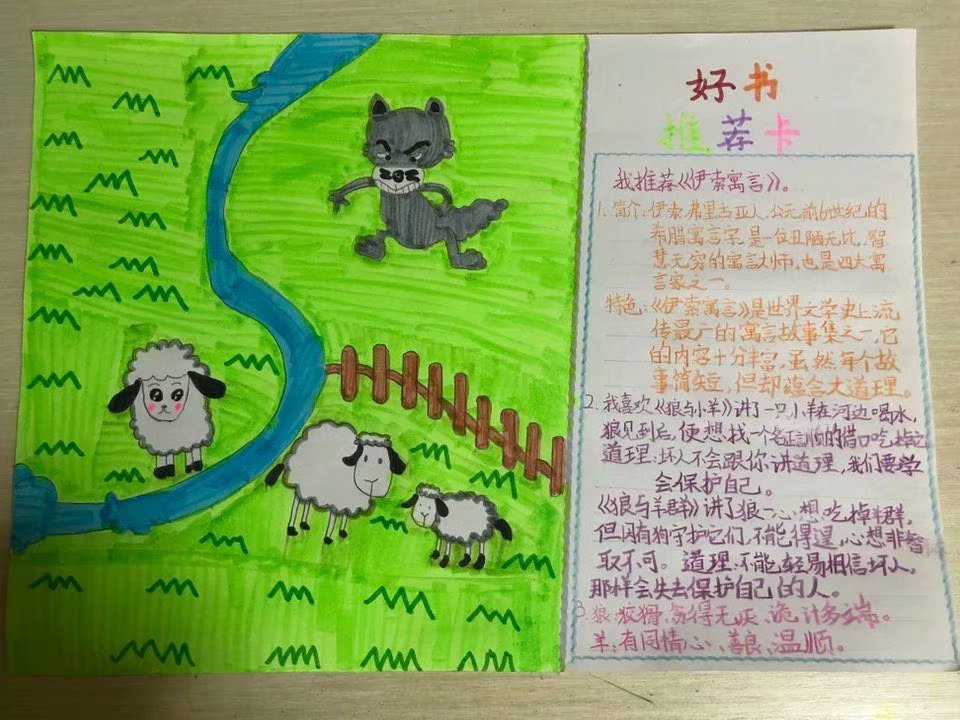 好书
推荐卡
我推荐《伊索寓言》。
1.简介:伊索,弗里吉亚人,公元前6世纪的
希腊寓言家,是一位丑陋无比,智
慧无穷的寓言大师,也是四大寓
言家之一。
特色:《伊索寓言》是世界文学史上流
传最广的寓言故事集之一,它
的内容十分丰富,虽然每个故
事简短,但却蕴含大道理。
2.我喜欢《狼与小羊》讲了一只小羊在河边喝水,
狼见到后,便想找一个名正言顺的借口吃掉它
道理:坏人不会跟你讲道理,我们要学
会保护自己。
《狼与羊群》讲了狼一心想吃掉羊群,
但因有狗守护它们,不能得逞,心想非智
取不可。道理:不能轻易相信坏人,
那样会失去保护自己的人。
3.狼:狡猾、贪得无厌、诡计多端。
羊:有同情心、善良、温顺。